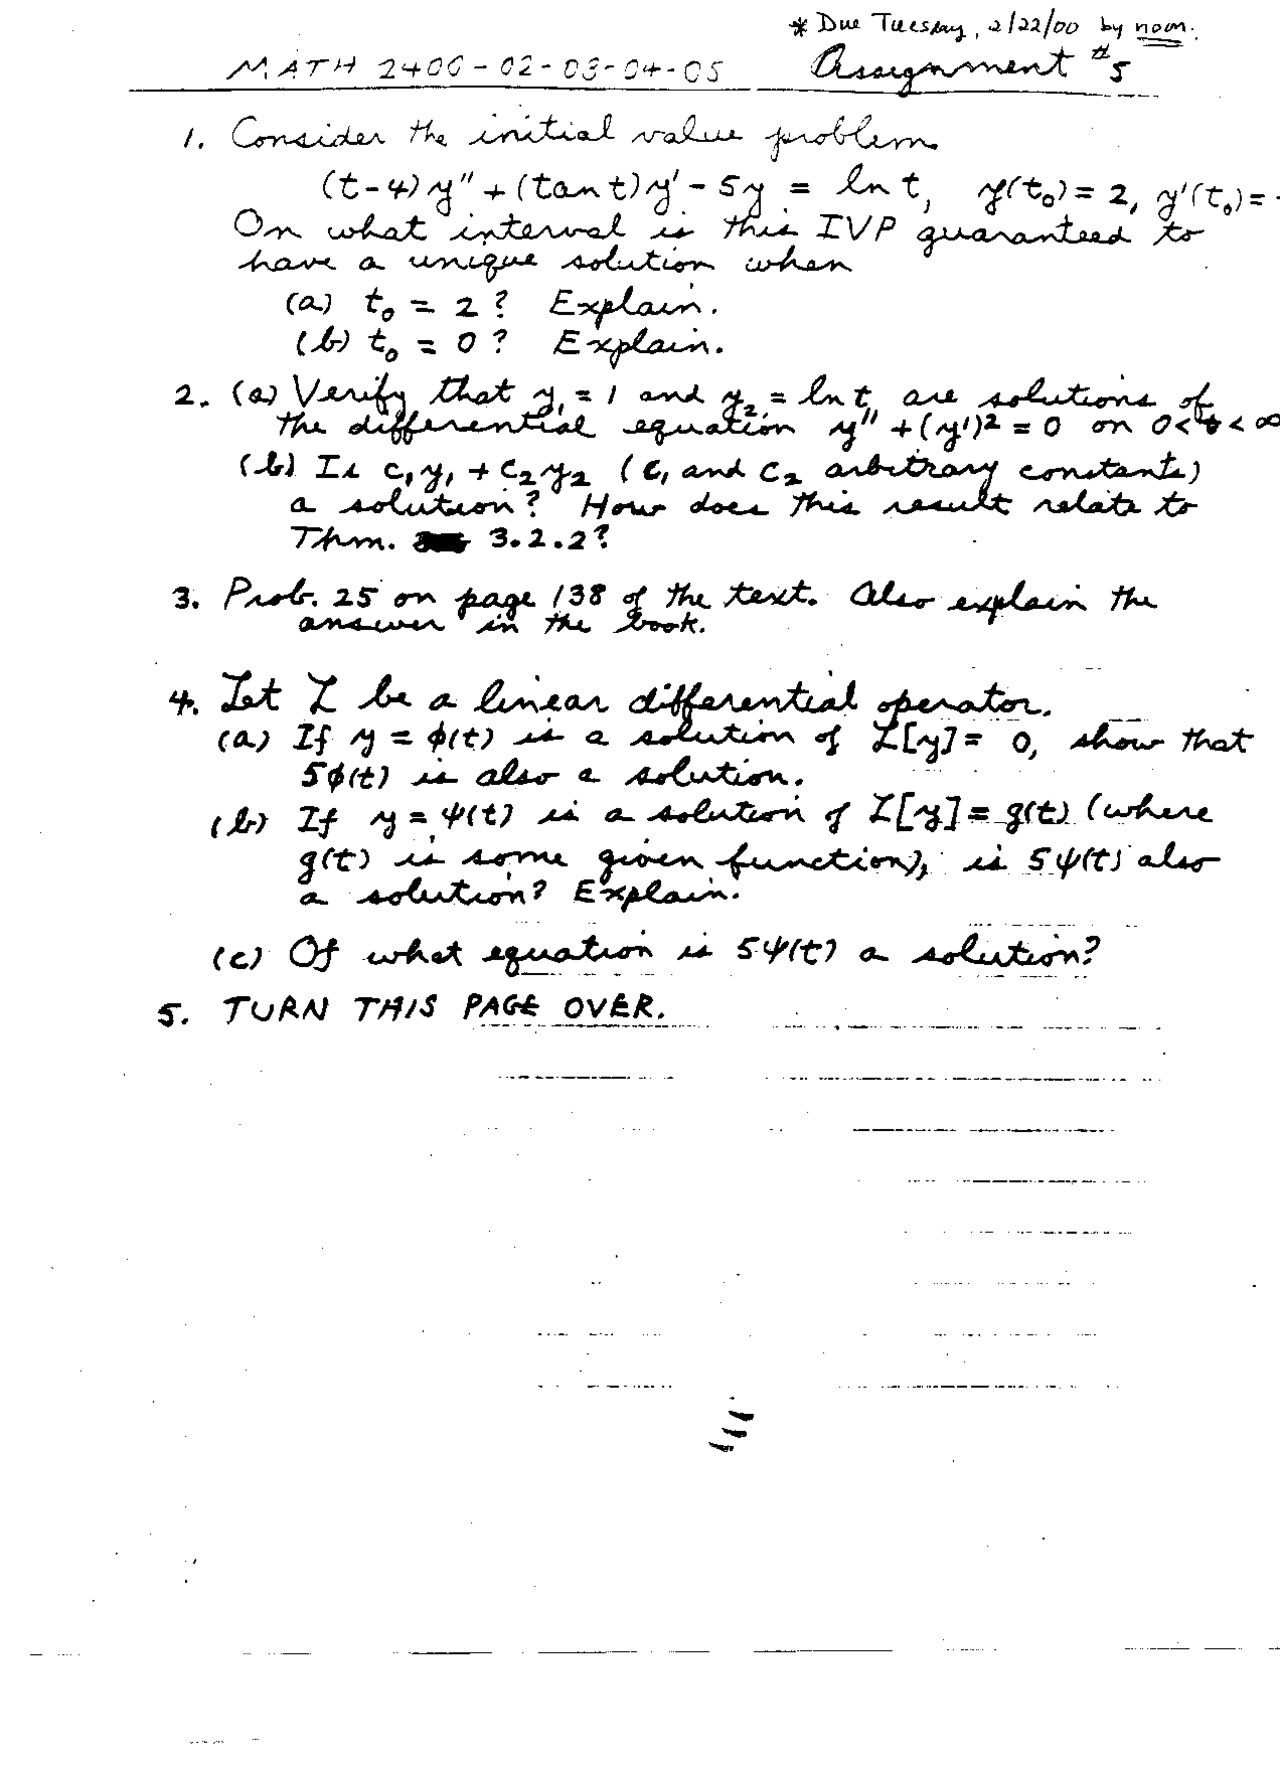 * Due Tuesday, 2/22/00 by noon.
MATH 2400-02-03-04-05 Assignment #5
1. Consider the initial value problem
(t-4)y" + (tan t)y' - 5y = ln t, y(t₀) = 2, y'(t₀) =
On what interval is this IVP guaranteed to
have a unique solution when
(a) t₀ = 2? Explain.
(b) t₀ = 0? Explain.
2. (a) Verify that y₁ = 1 and y₂ = ln t are solutions of
the differential equation y" + (y')² = 0 on 0 < t < ∞
(b) Is c₁y₁ + c₂y₂ (c₁ and c₂ arbitrary constants)
a solution? How does this result relate to
Thm. 3.2.2?
3. Prob. 25 on page 138 of the text. Also explain the
answer in the book.
4. Let L be a linear differential operator.
(a) If y = φ(t) is a solution of L[y] = 0, show that
5φ(t) is also a solution.
(b) If y = ψ(t) is a solution of L[y] = g(t) (where
g(t) is some given function), is 5ψ(t) also
a solution? Explain.
(c) Of what equation is 5ψ(t) a solution?
5. TURN THIS PAGE OVER.